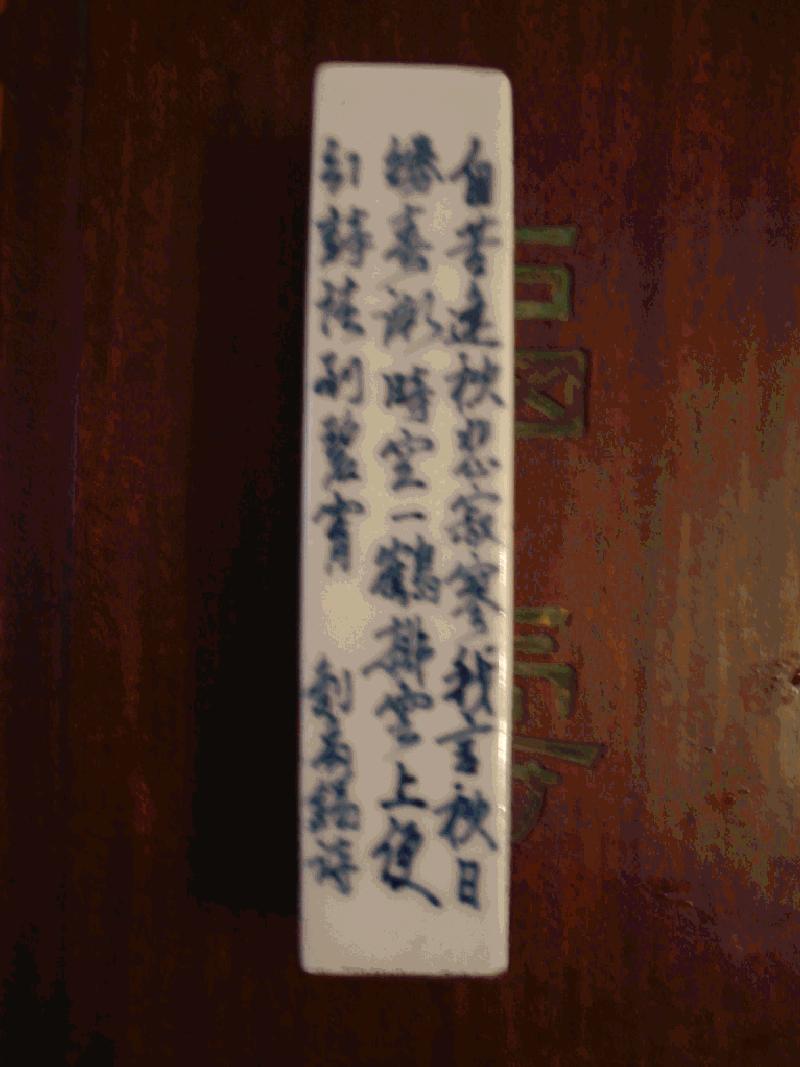 自苦逢秋悲寂寥我言秋日
勝春潮時空一鶴排雲上便
引詩情到碧宵 劉禹錫